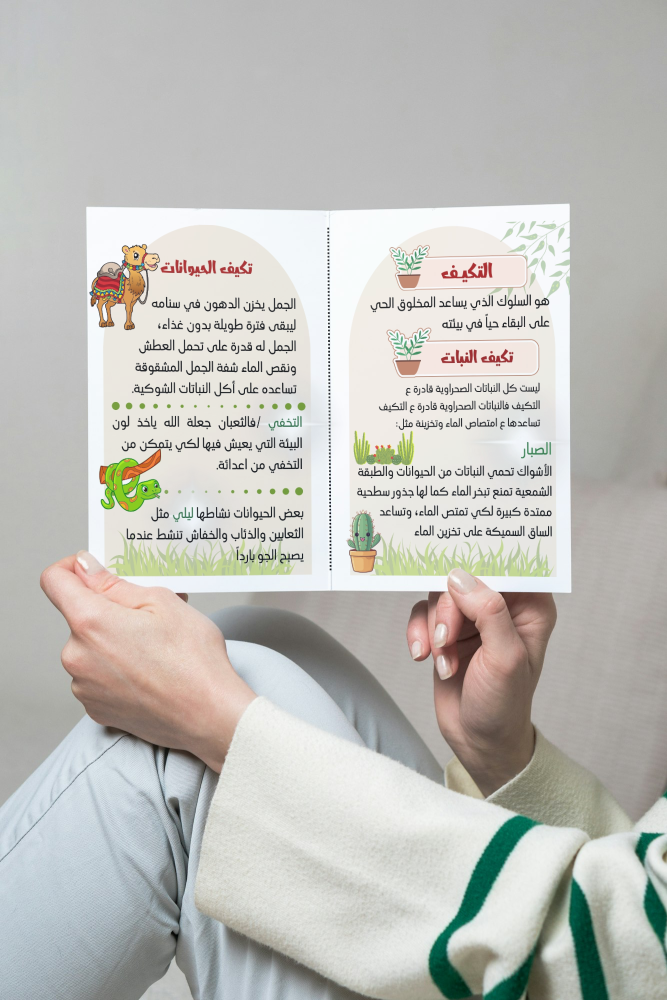 التكيف
هو السلوك الذي يساعد المخلوق الحي
على البقاء حياً في بيئته
تكيف النبات
ليست كل النباتات الصحراوية قادرة ع
التكيف فالنباتات الصحراوية قادرة ع التكيف
تساعدها ع امتصاص الماء وتخزينة مثل:
الصبار
الأشواك تحمي النباتات من الحيوانات والطبقة
الشمعية تمنع تبخر الماء كما لها جذور سطحية
ممتدة كبيرة لكي تمتص الماء، وتساعد
الساق السميكة على تخزين الماء
تكيف الحيوانات
الجمل يخزن الدهون في سنامه
ليبقى فترة طويلة بدون غذاء،
الجمل له قدرة على تحمل العطش
ونقص الماء شفة الجمل المشقوقة
تساعده على أكل النباتات الشوكية.
التخفي /فالثعبان جعلة الله ياخذ لون
البيئة التي يعيش فيها لكي يتمكن من
التخفي من اعدائة.
بعض الحيوانات نشاطها ليلي مثل
الثعابين والذئاب والخفاش تنشط عندما
يصبح الجو بارداً